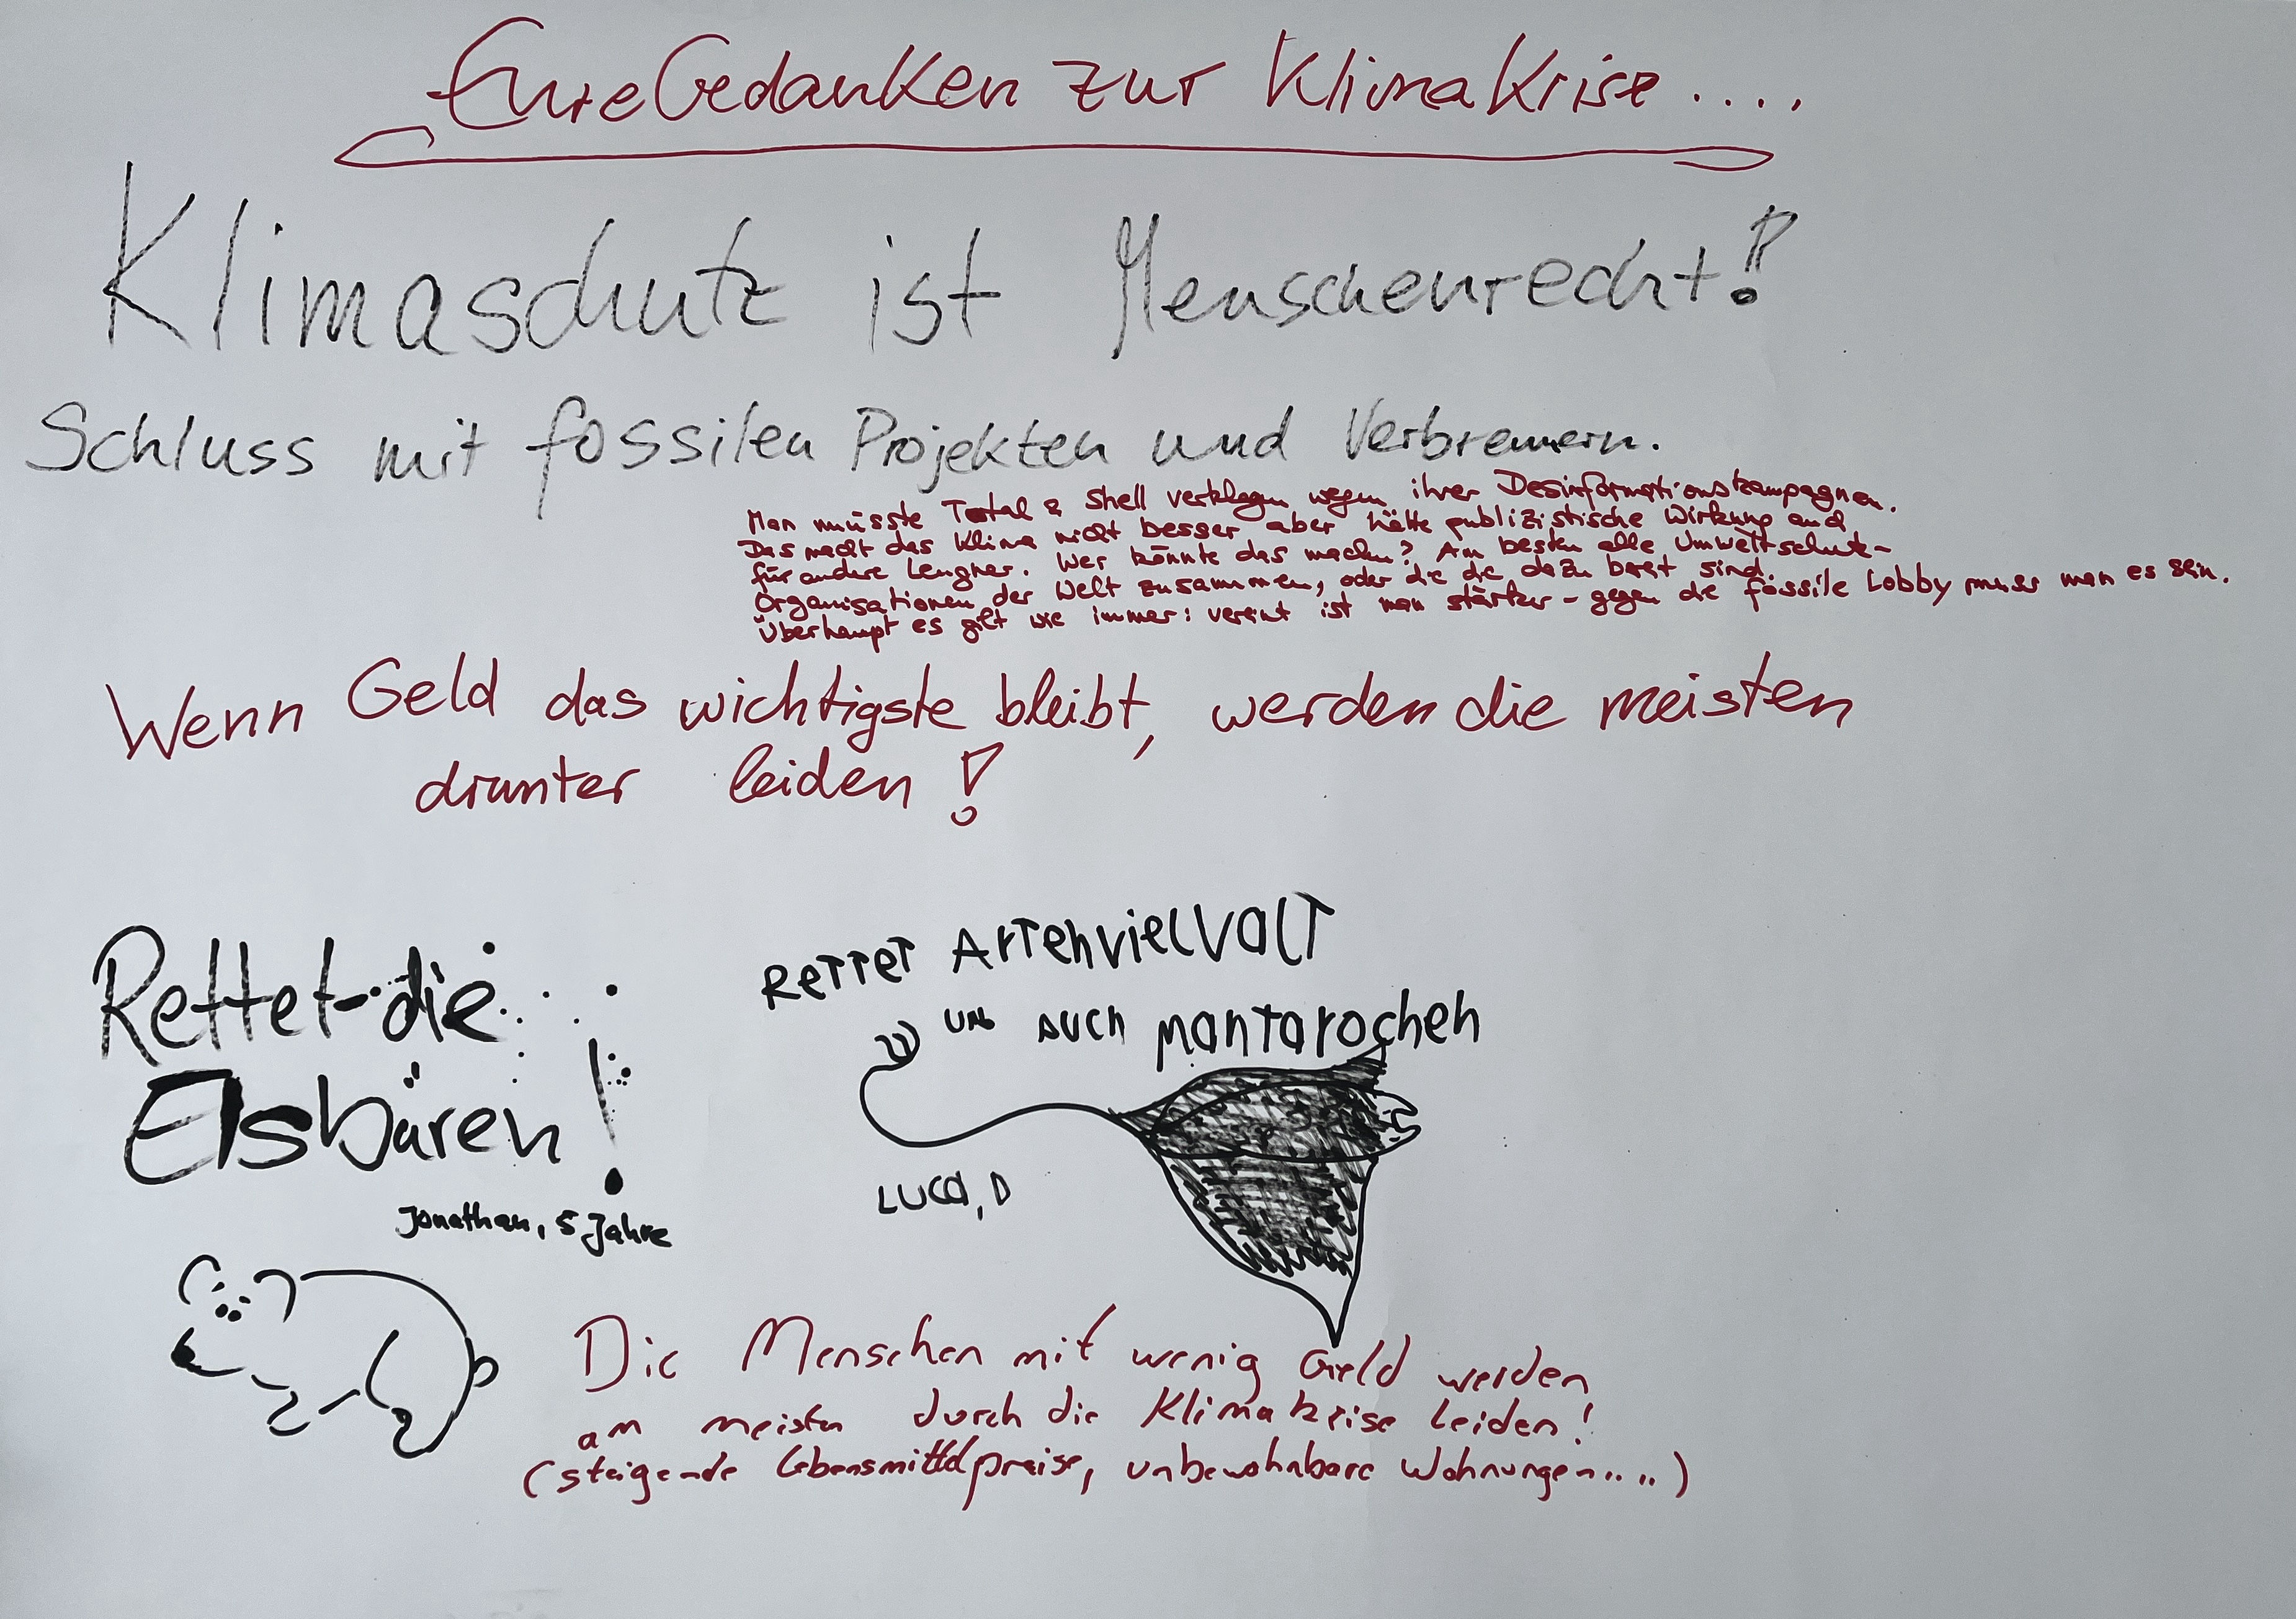 Eure Gedanken zur Klimakrise....
Klimaschutz ist Menschenrecht!
Schluss mit fossilen Projekten und Verbrennern.
Man müsste Total & Shell verklagen wegen ihrer Desinformationskampagnen.
Das macht das Klima nicht besser aber hätte publizistische Wirkung auch
für andere Leugner. Wer könnte das machen? Am besten alle Umweltschutz-
Organisationen der Welt zusammen, oder die die dazu bereit sind.
Überhaupt es gilt wie immer: vereint ist man stärker - gegen die fossile Lobby muss man es sein.
Wenn Geld das wichtigste bleibt, werden die meisten
drunter leiden!
Rettet die
Eisbären!
Jonathan, 5 Jahre
RETTET ArTenvielVaLT
UND AUCH mantarochen
LUCa, D
Die Menschen mit wenig Geld werden
am meisten durch die Klimakrise leiden!
(steigende Lebensmittelpreise, unbewohnbare Wohnungen....)